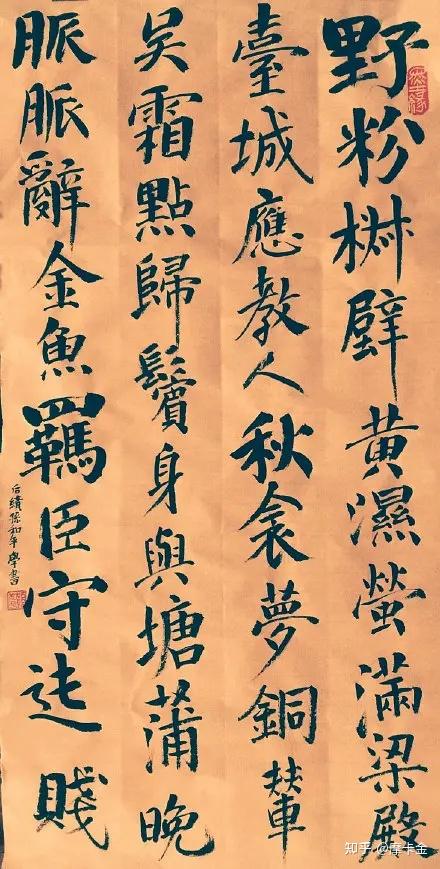 野粉椒壁黃濕螢滿梁殿
臺城應教人秋衾夢銅輦
吳霜點歸鬢身與塘蒲晚
脈脈辭金魚羈臣守迍賤
后績孫和平學書
知乎 @摩卡金